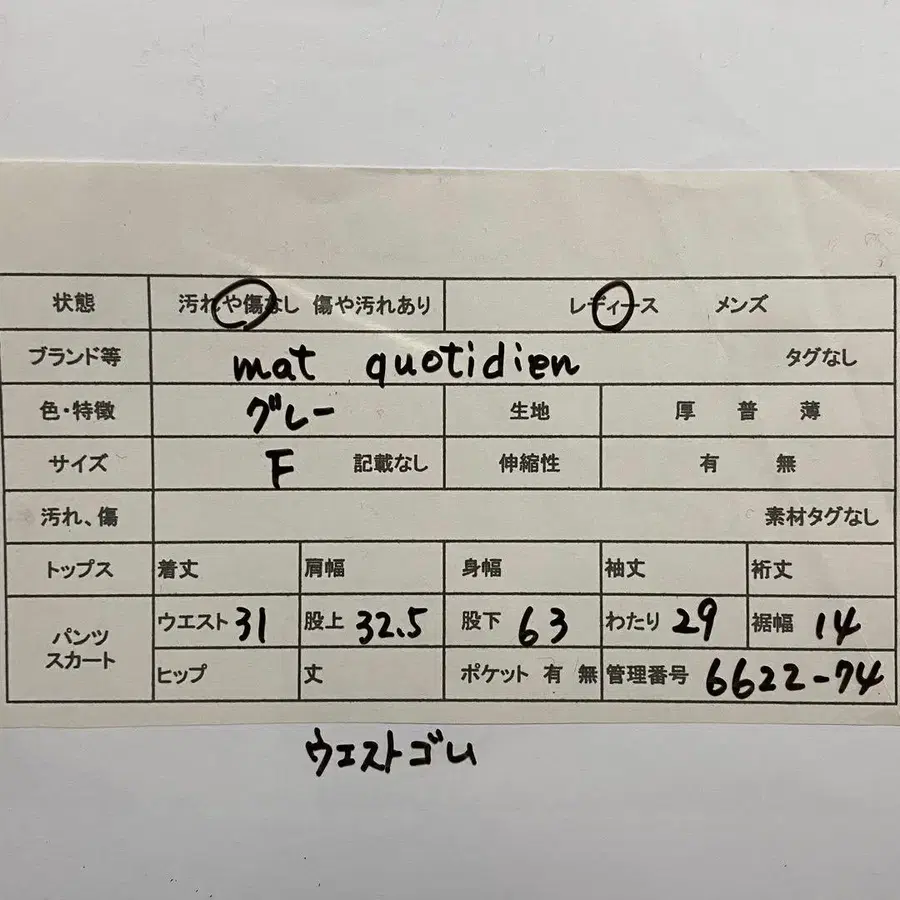 状態 汚れや傷なし 傷や汚れあり レディース メンズ
ブランド等 mat quotidien タグなし
色・特徴 グレー 生地 厚 普 薄
サイズ F 記載なし 伸縮性 有 無
汚れ、傷 素材タグなし
トップス 着丈 肩幅 身幅 袖丈 裄丈
パンツ スカート ウエスト 31 股上 32.5 股下 63 わたり 29 裾幅 14
ヒップ 丈 ポケット 有 無 管理番号 6622-74
ウエストゴム